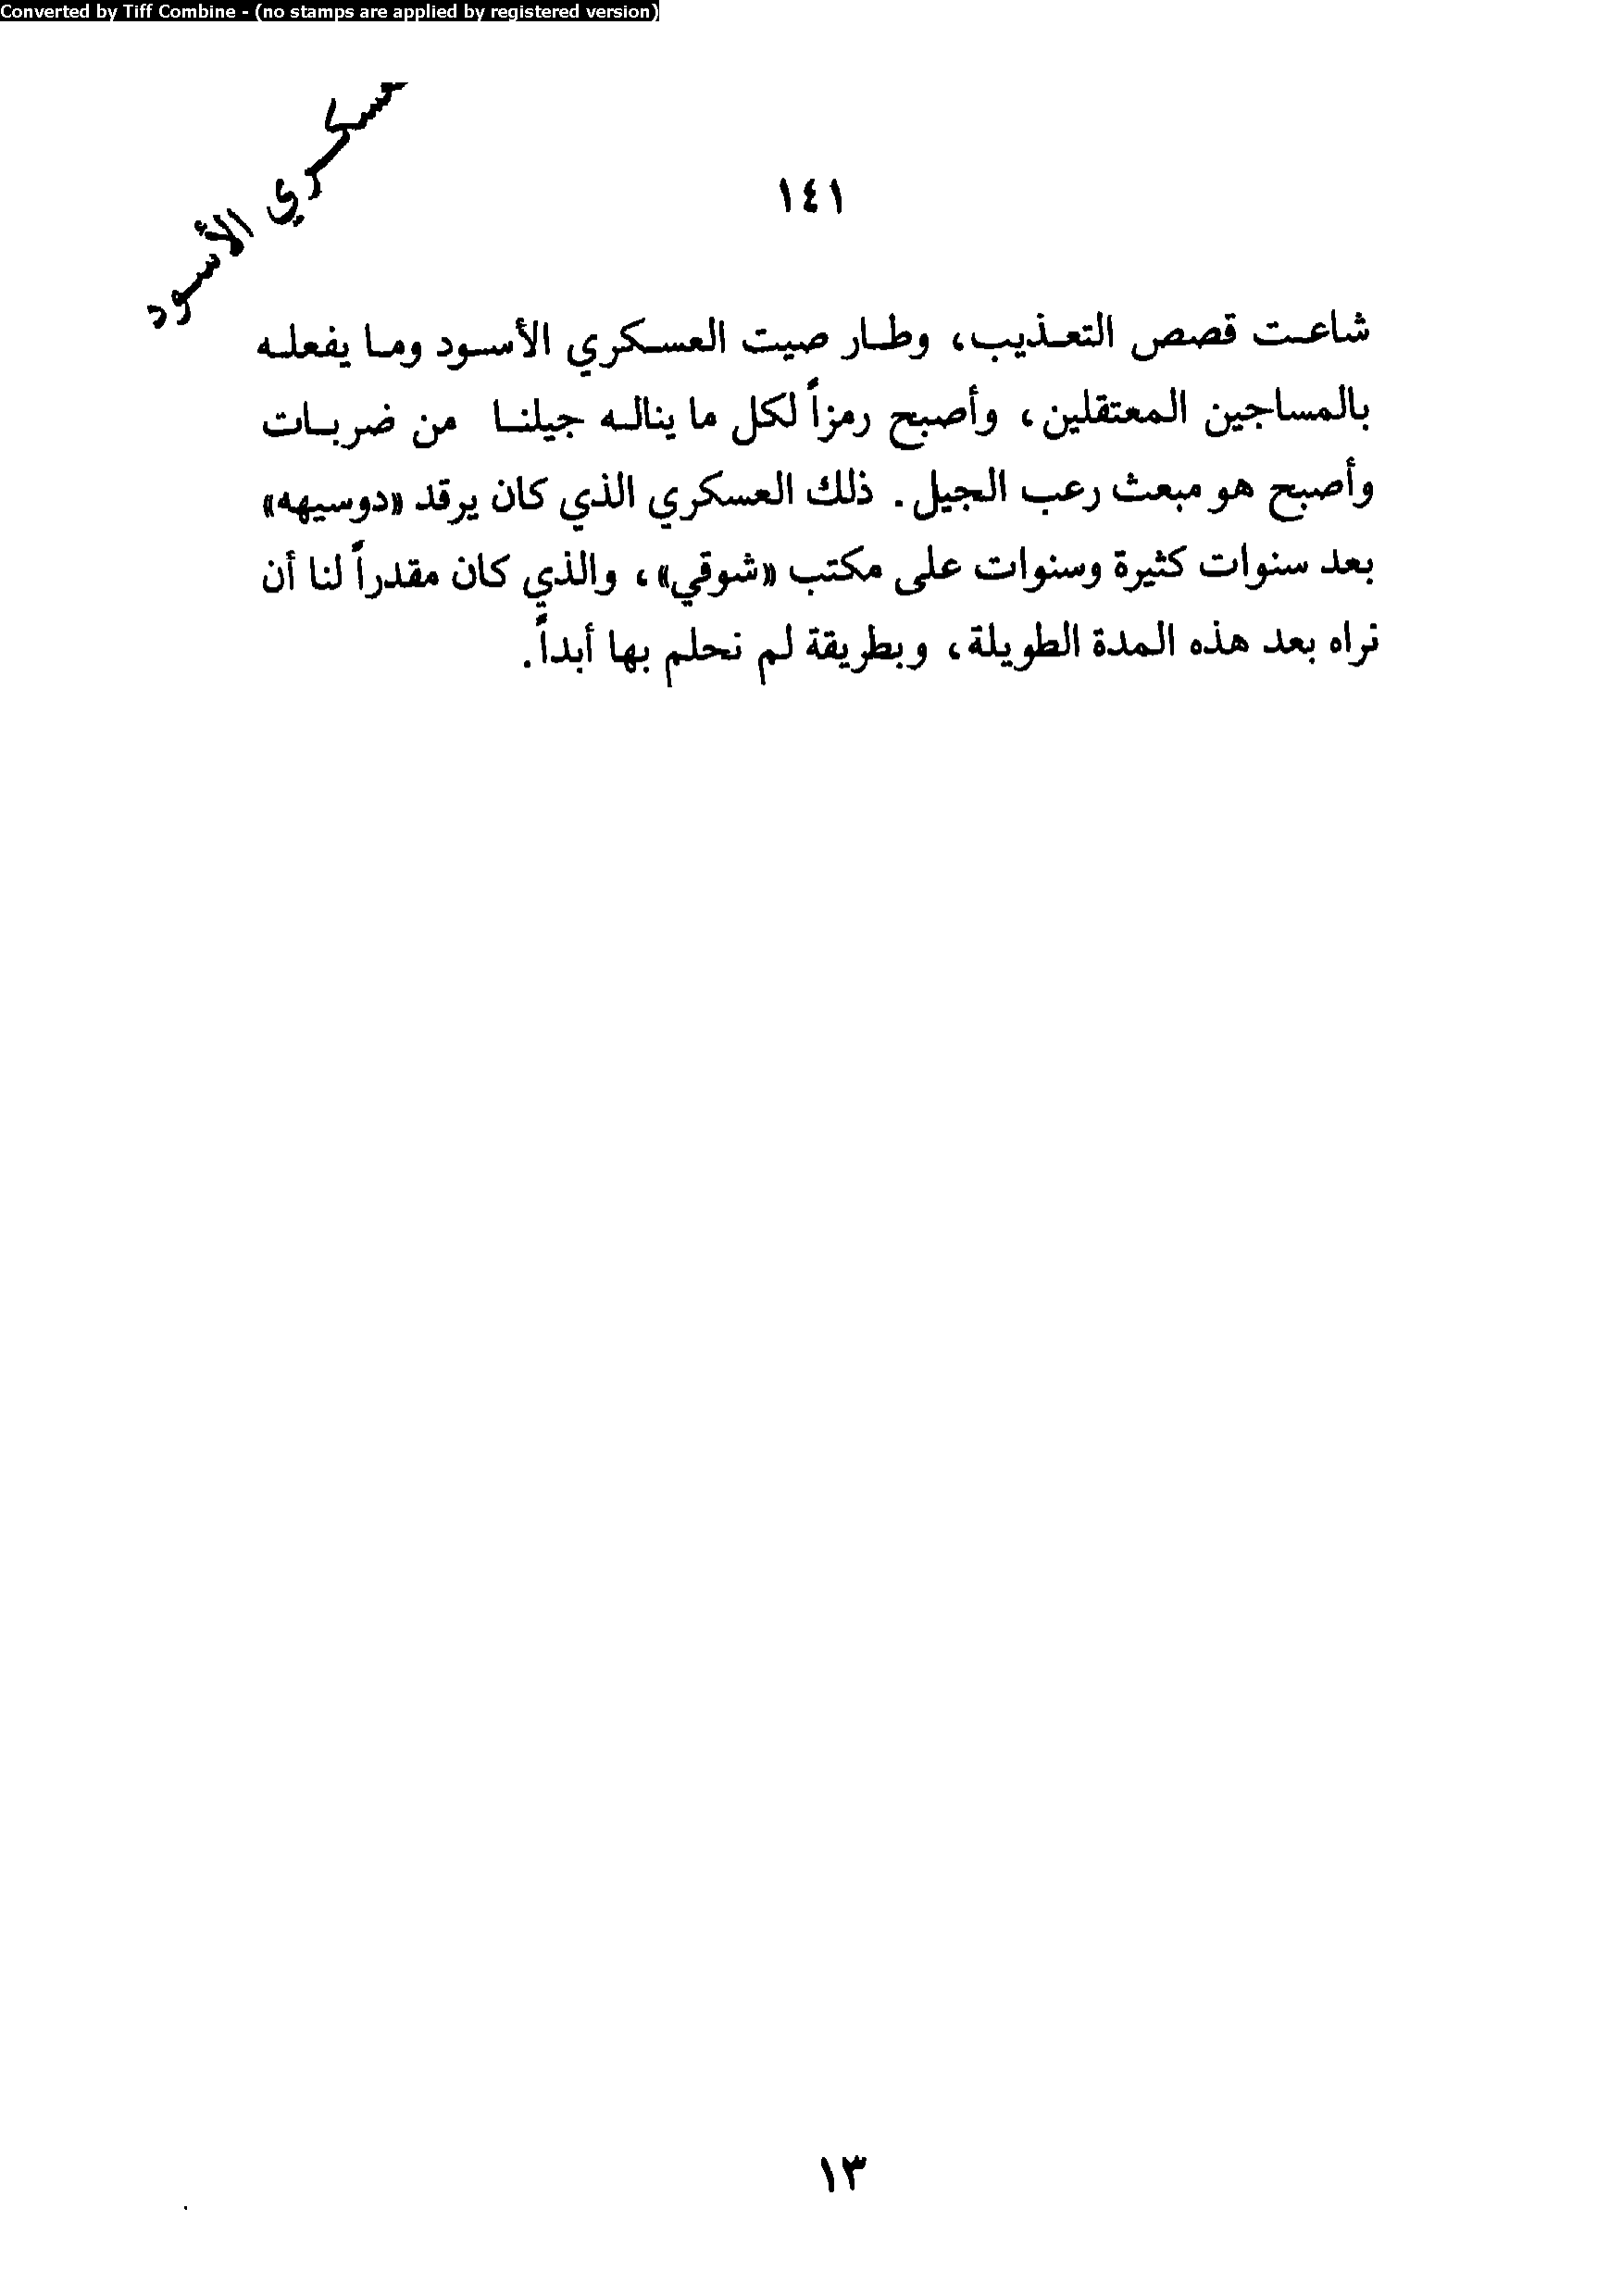 Converted by Tiff Combine - (no stamps are applied by registered version)
الأسود
١٤١
شاعت قصص التعذيب، وطار صيت العسكري الأسود وما يفعله
بالمساجين المعتقلين، وأصبح رمزاً لكل ما يناله جيلنا من ضربات
وأصبح هو مبعث رعب الجيل. ذلك العسكري الذي كان يرقد «دوسيهه»
بعد سنوات كثيرة وسنوات على مكتب «شوقي»، والذي كان مقدراً لنا أن
نراه بعد هذه المدة الطويلة، وبطريقة لم نحلم بها أبداً.
١٣